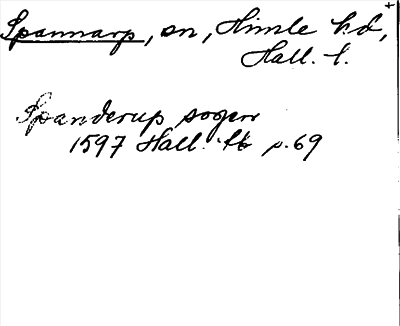 Spannarp, sn, Himle hd,
Hall. l.
Spanderup sogen
1597 Hall. tb p. 69